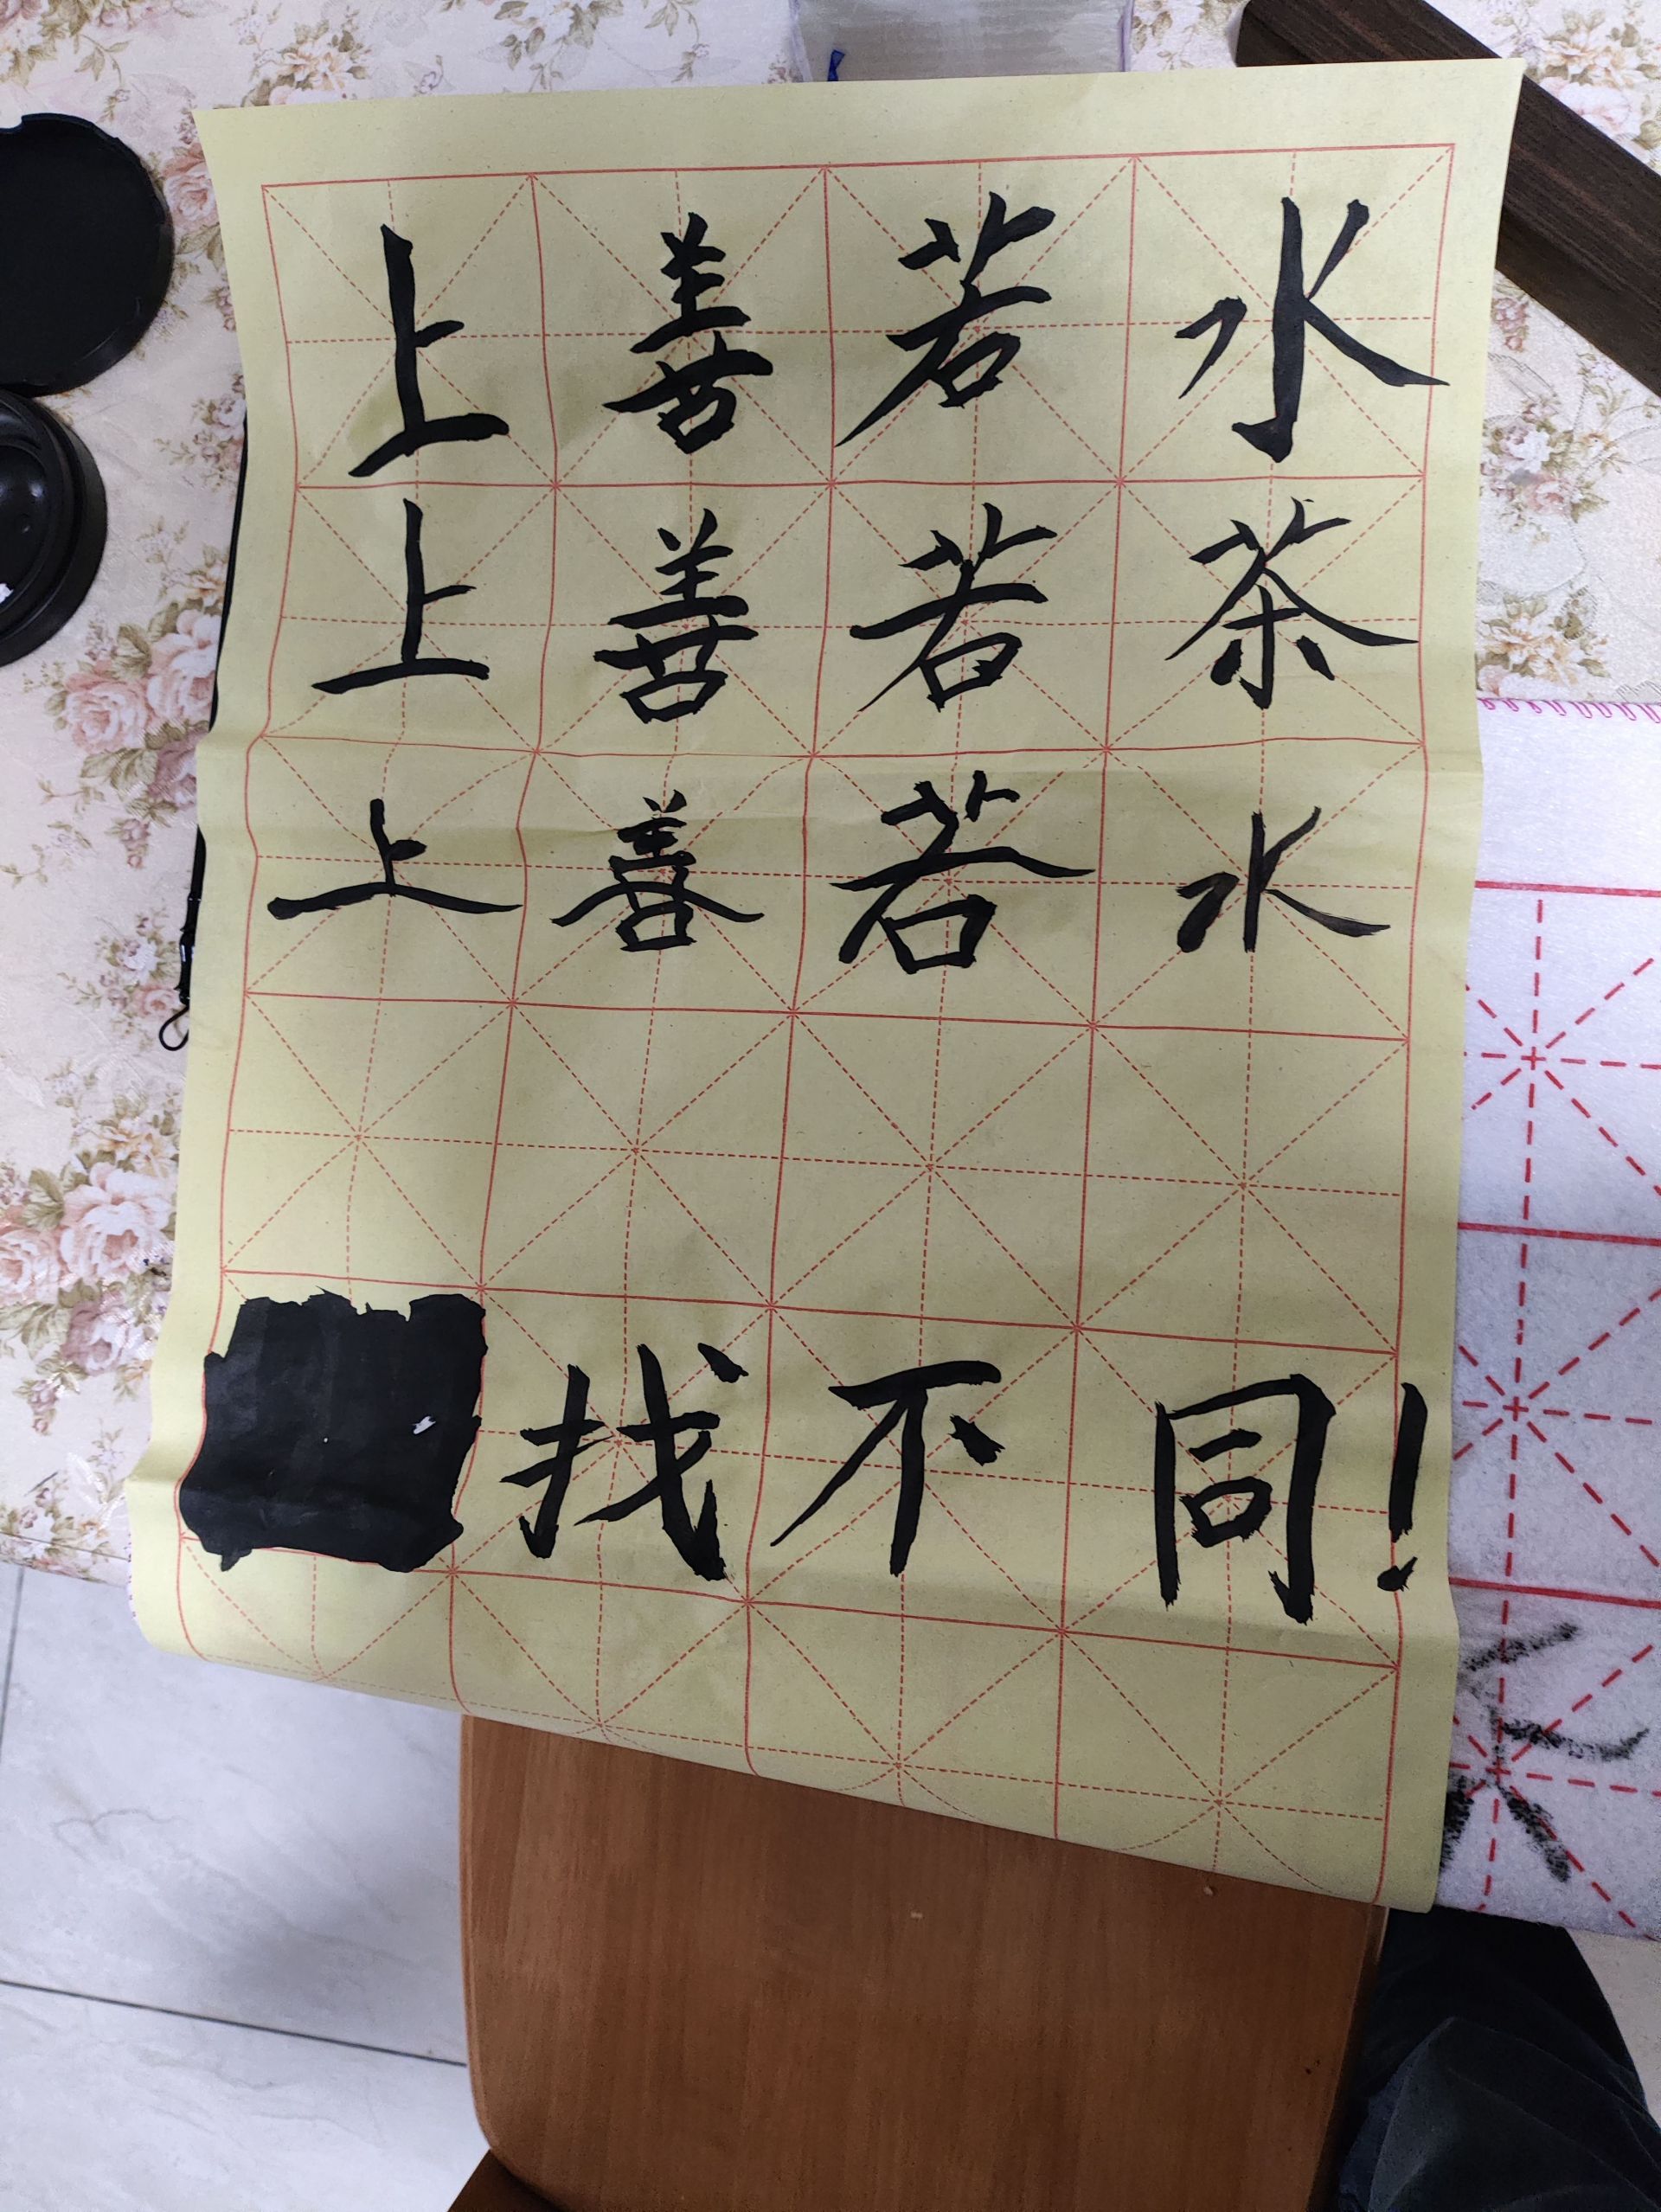 上善若水
上善若茶
上善若水
找不同!